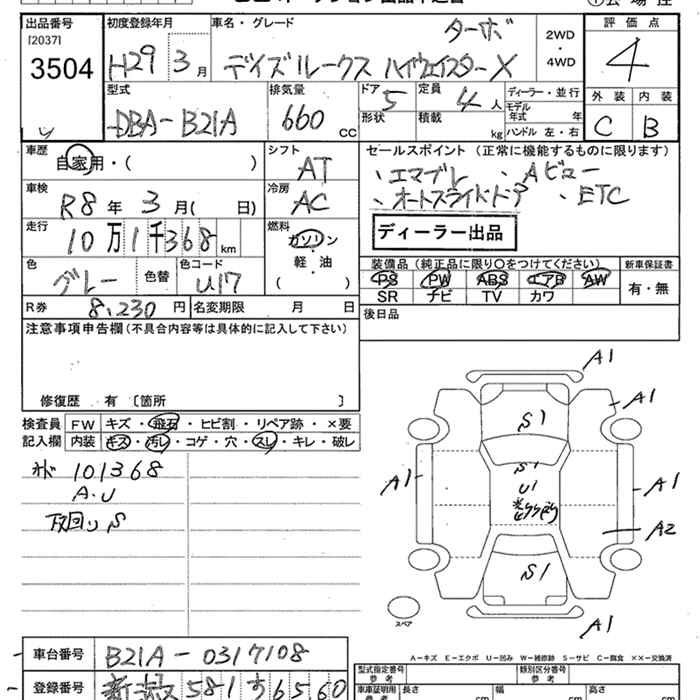 出品番号 初度登録年月 車名・グレード ターボ 2WD・4WD 評価点
[2037]
3504 H29年3月 デイズルークス ハイウェイスターX 4
型式 排気量 ドア 定員 ディーラー・並行 外装 内装
DBA-B21A 660cc 5 4人 モデル年式 年 C B
形状 積載 kg ハンドル 左・右
車歴 シフト セールスポイント (正常に機能するものに限ります)
自家用・( ) AT 、エマブレ 、Aビュー
車検 冷房 、オートスライドドア 、ETC
R8年3月(日) AC
走行 燃料 ディーラー出品
10万1千368km ガソリン
軽・油
( )
色 色替 色コード 装備品 (純正品に限り○をつけてください) 新車保証書
グレー U17 PS PW ABS エアB AW 有・無
SR ナビ TV カワ
R券 8,230円 名変期限 月 日 後日品
注意事項申告欄 (不具合内容等は具体的に記入して下さい)
修復歴 有 〔箇所 〕
検査員 FW キズ・飛石・ヒビ割・リペア跡・×要
記入欄 内装 キズ・汚レ・コゲ・穴・スレ・キレ・破レ
101368
A.U
下回りS
A1
A1
S1
A1
S1
U1
A1
A2
S1
A1
スペア
A-キズ E-エクボ U-凹み W-補修跡 S-サビ C-腐食 ××-交換済
車台番号 B21A-0317108
型式指定番号 参考 類別区分番号 参考
登録番号 581 す 65.60
車庫証明用 参考 長さ cm 幅 cm 高さ cm